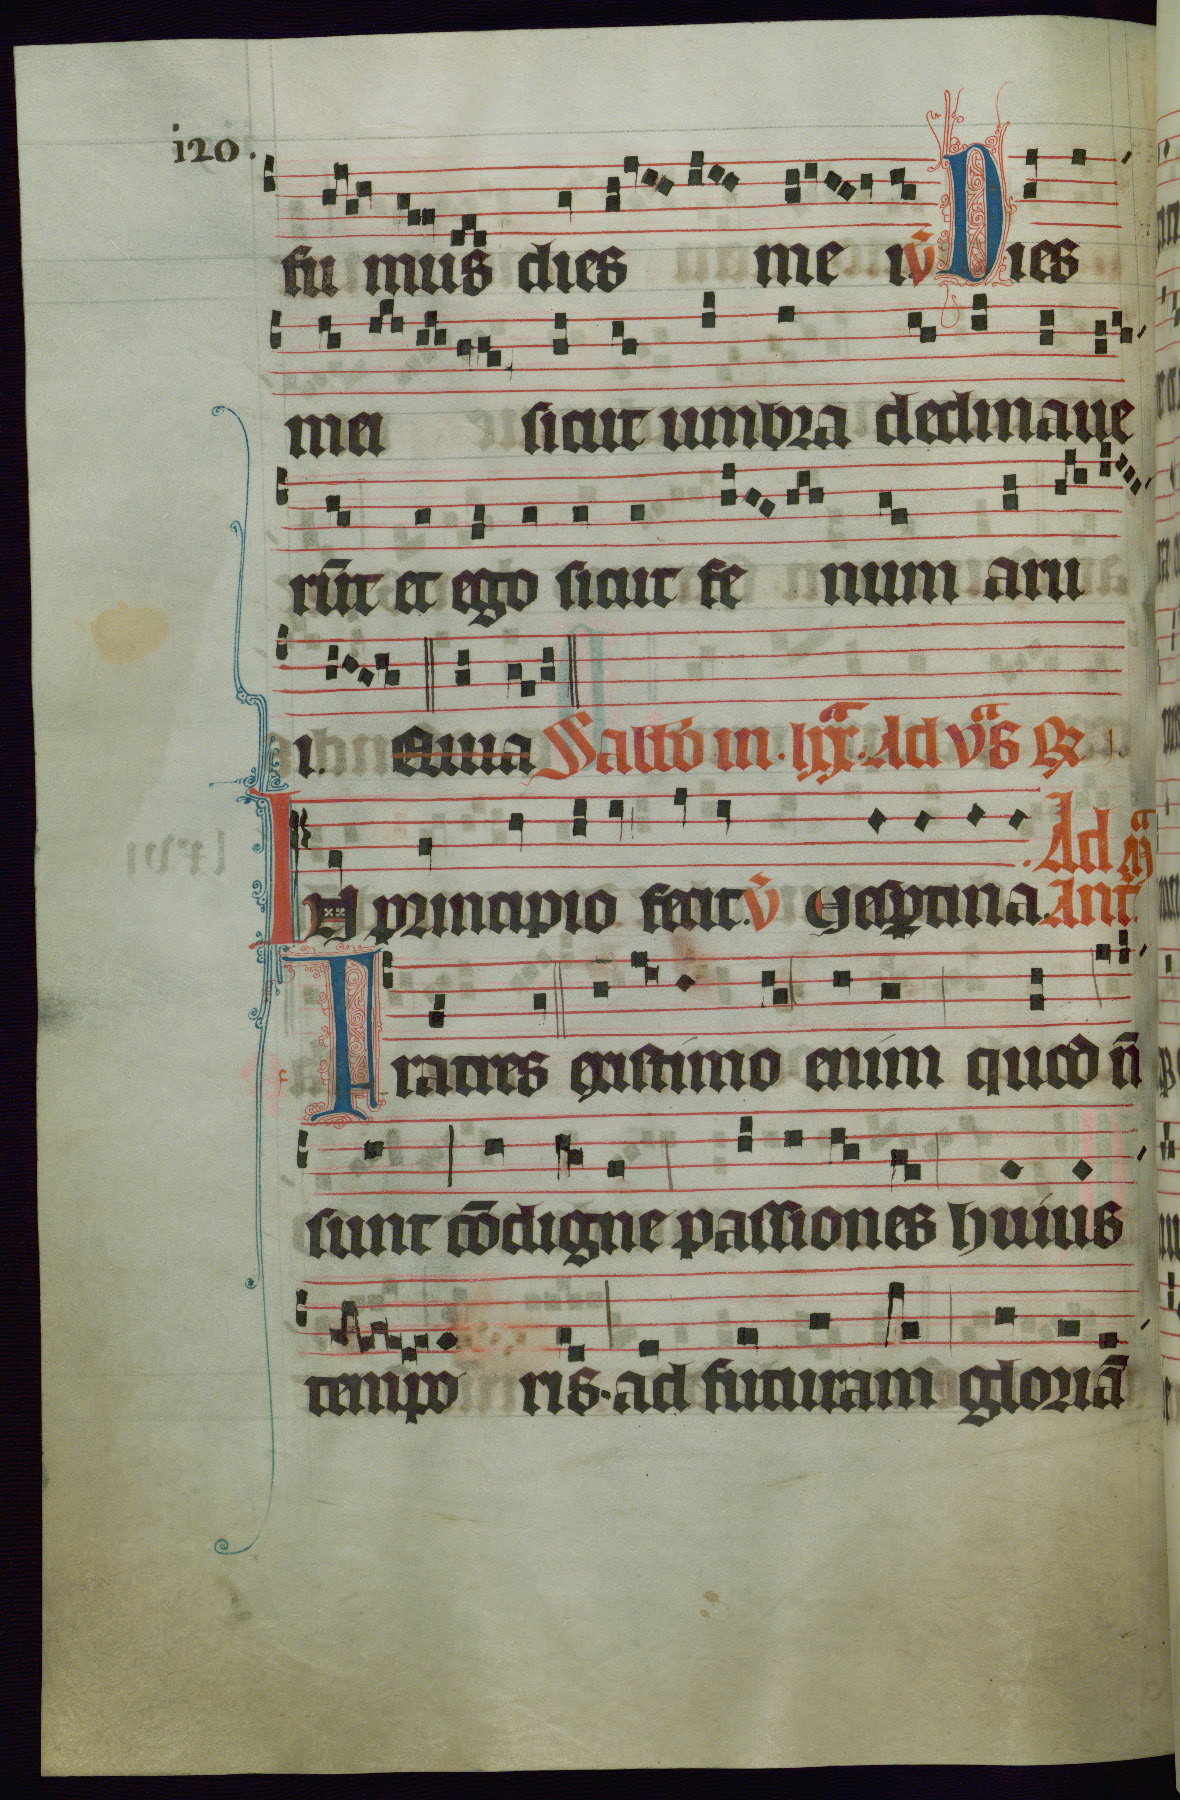 i20.
fu mus dies me i v̄ Dies
mei sicut umbra declinaue
rūt et ego sicut fe num aru
i. Quia Sabbō in. lxxᵃ. Ad vᵃs R
IN principio fecit. v̄ Vesptina. Ad mᵃ
Ant
Fratres existimo enim quod n̄
sunt cōdigne passiones huius
tempo ris. ad futuram gloriā